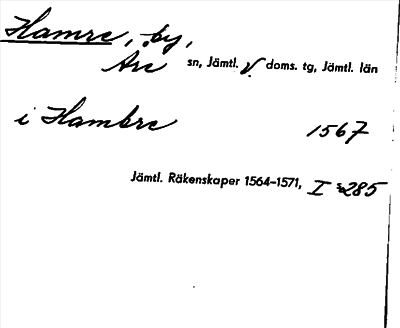 Hamre, by,
Are sn, Jämtl. v doms. tg, Jämtl. län
i Hambre 1567
Jämtl. Räkenskaper 1564-1571, I s 285